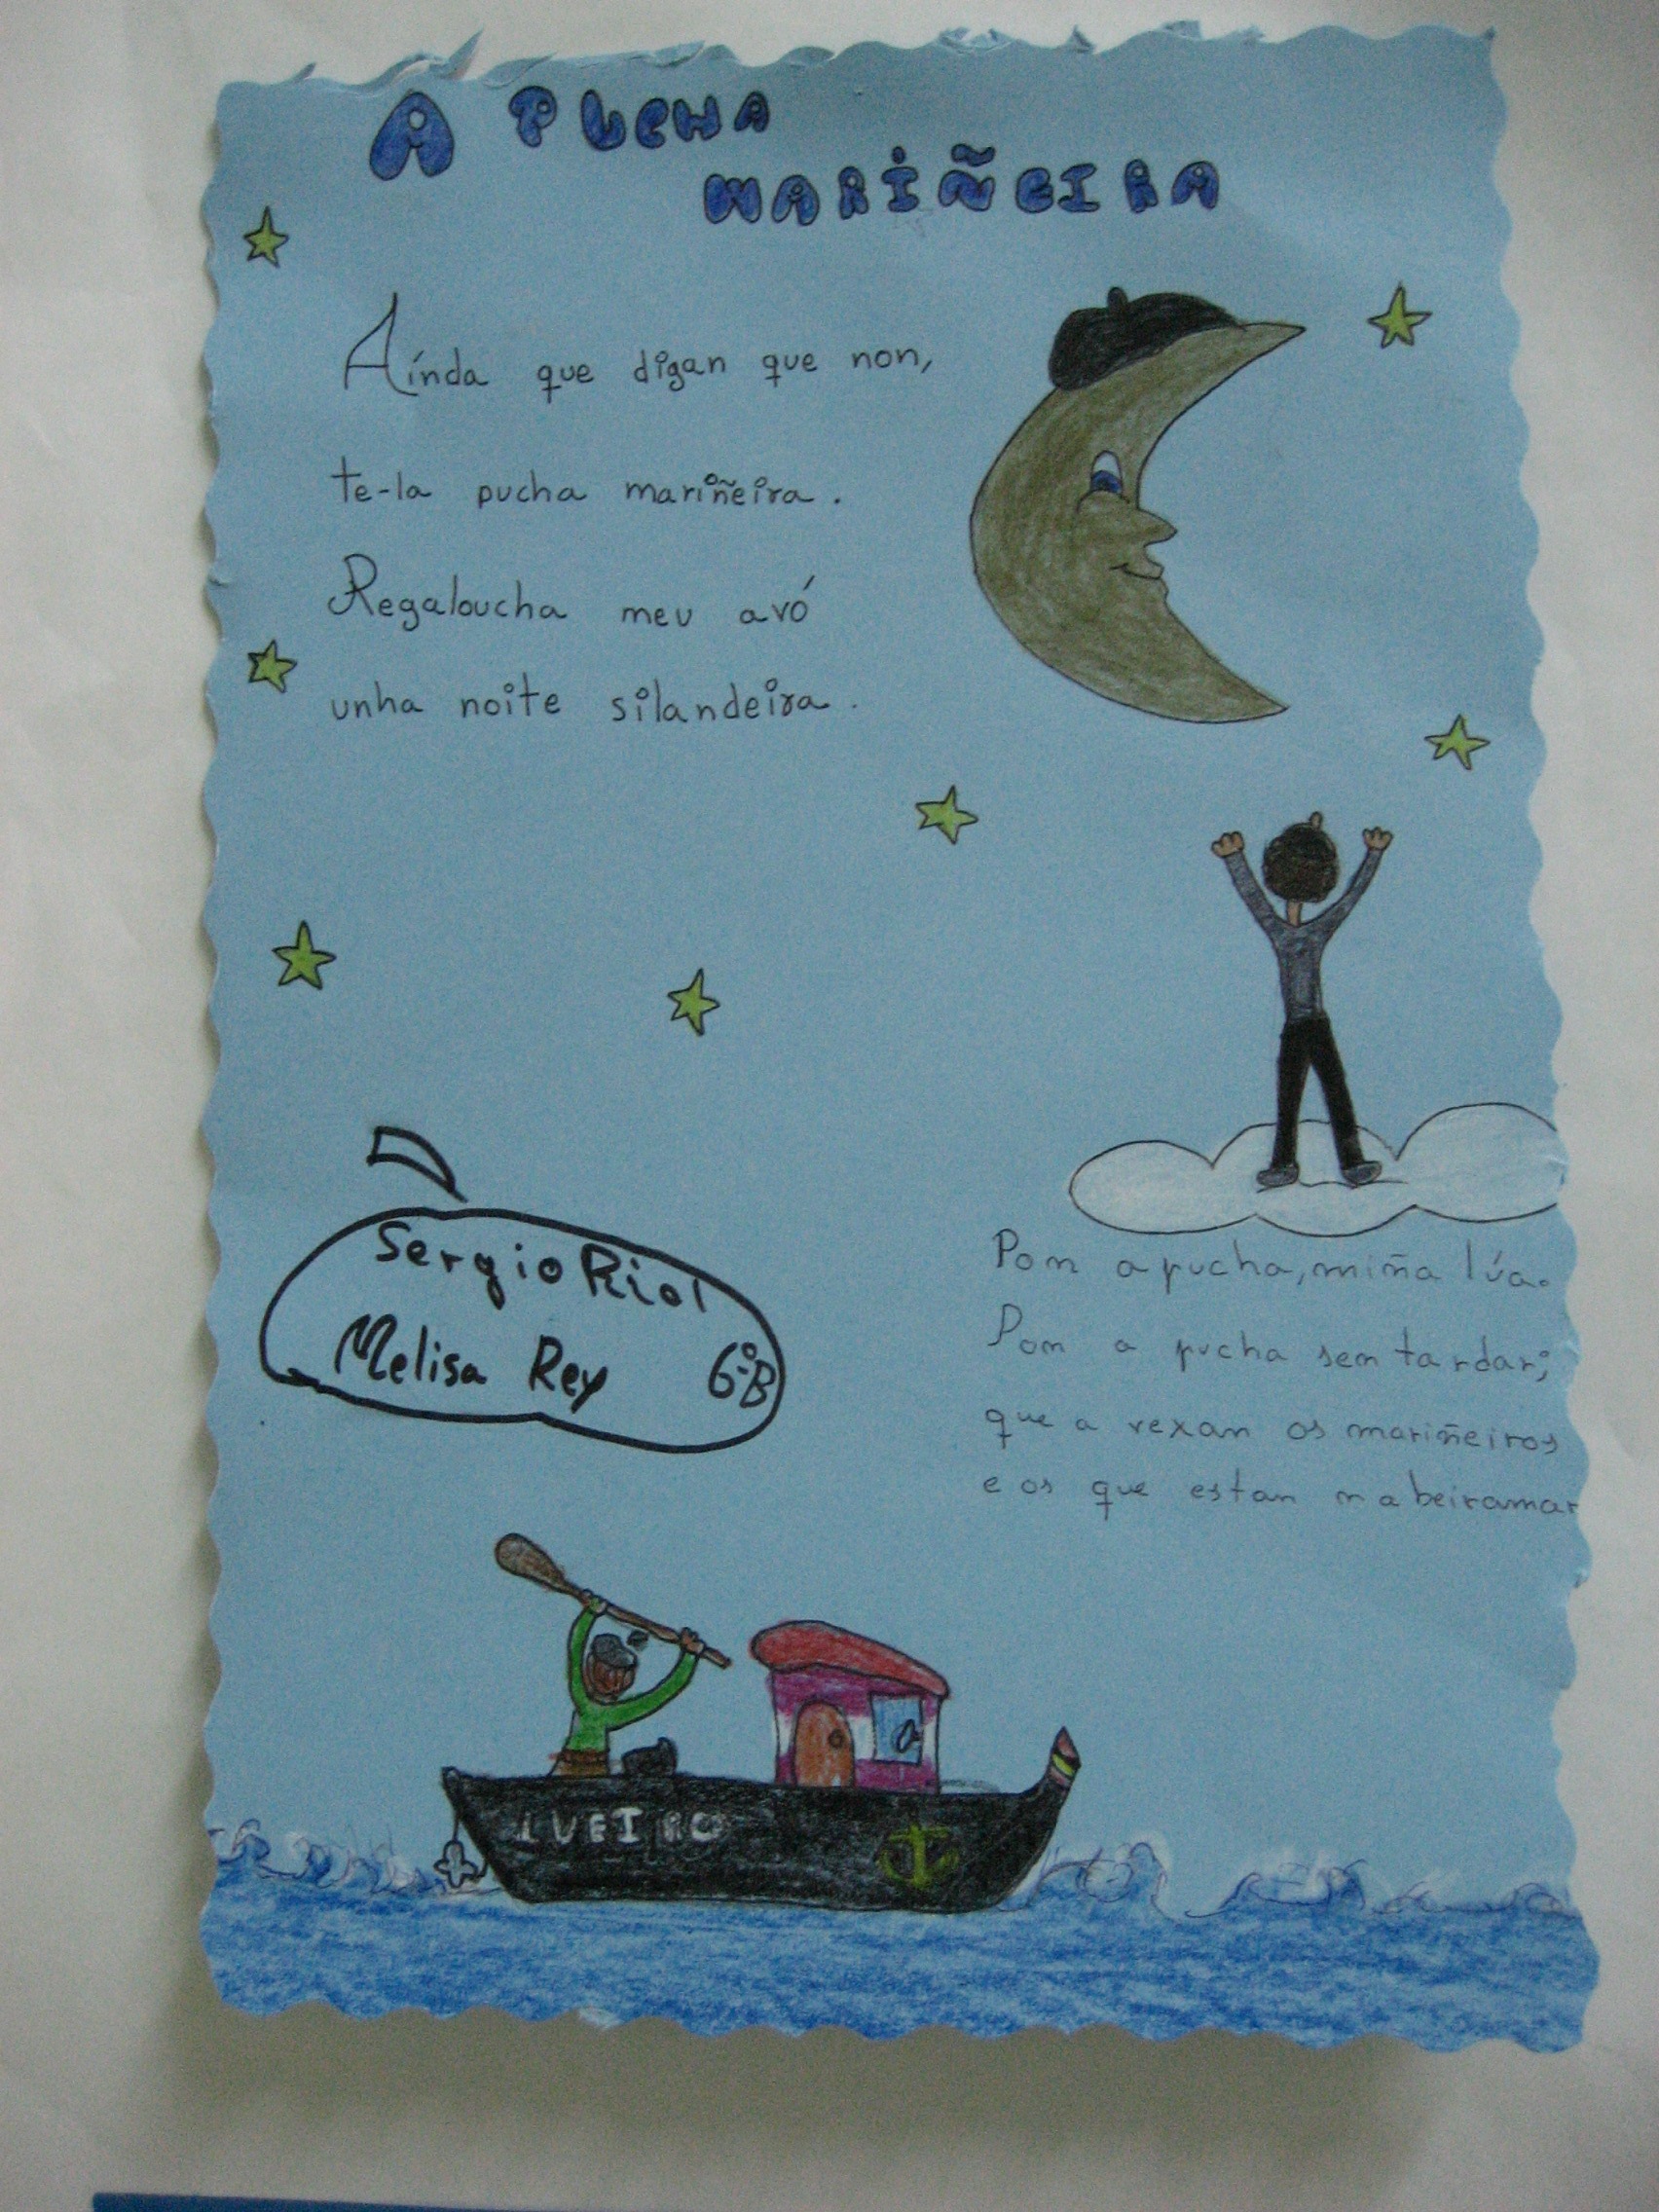 A PUCHA
MARIÑEIRA
Aínda que digan que non,
te-la pucha mariñeira.
Regaloucha meu avó
unha noite silandeira.
Sergio Riol
Melisa Rey 6ºB
Pon a pucha, miña lúa.
Pon a pucha sen tardar;
que a vexan os mariñeiros
e os que estan na beiramar
LUEIRO